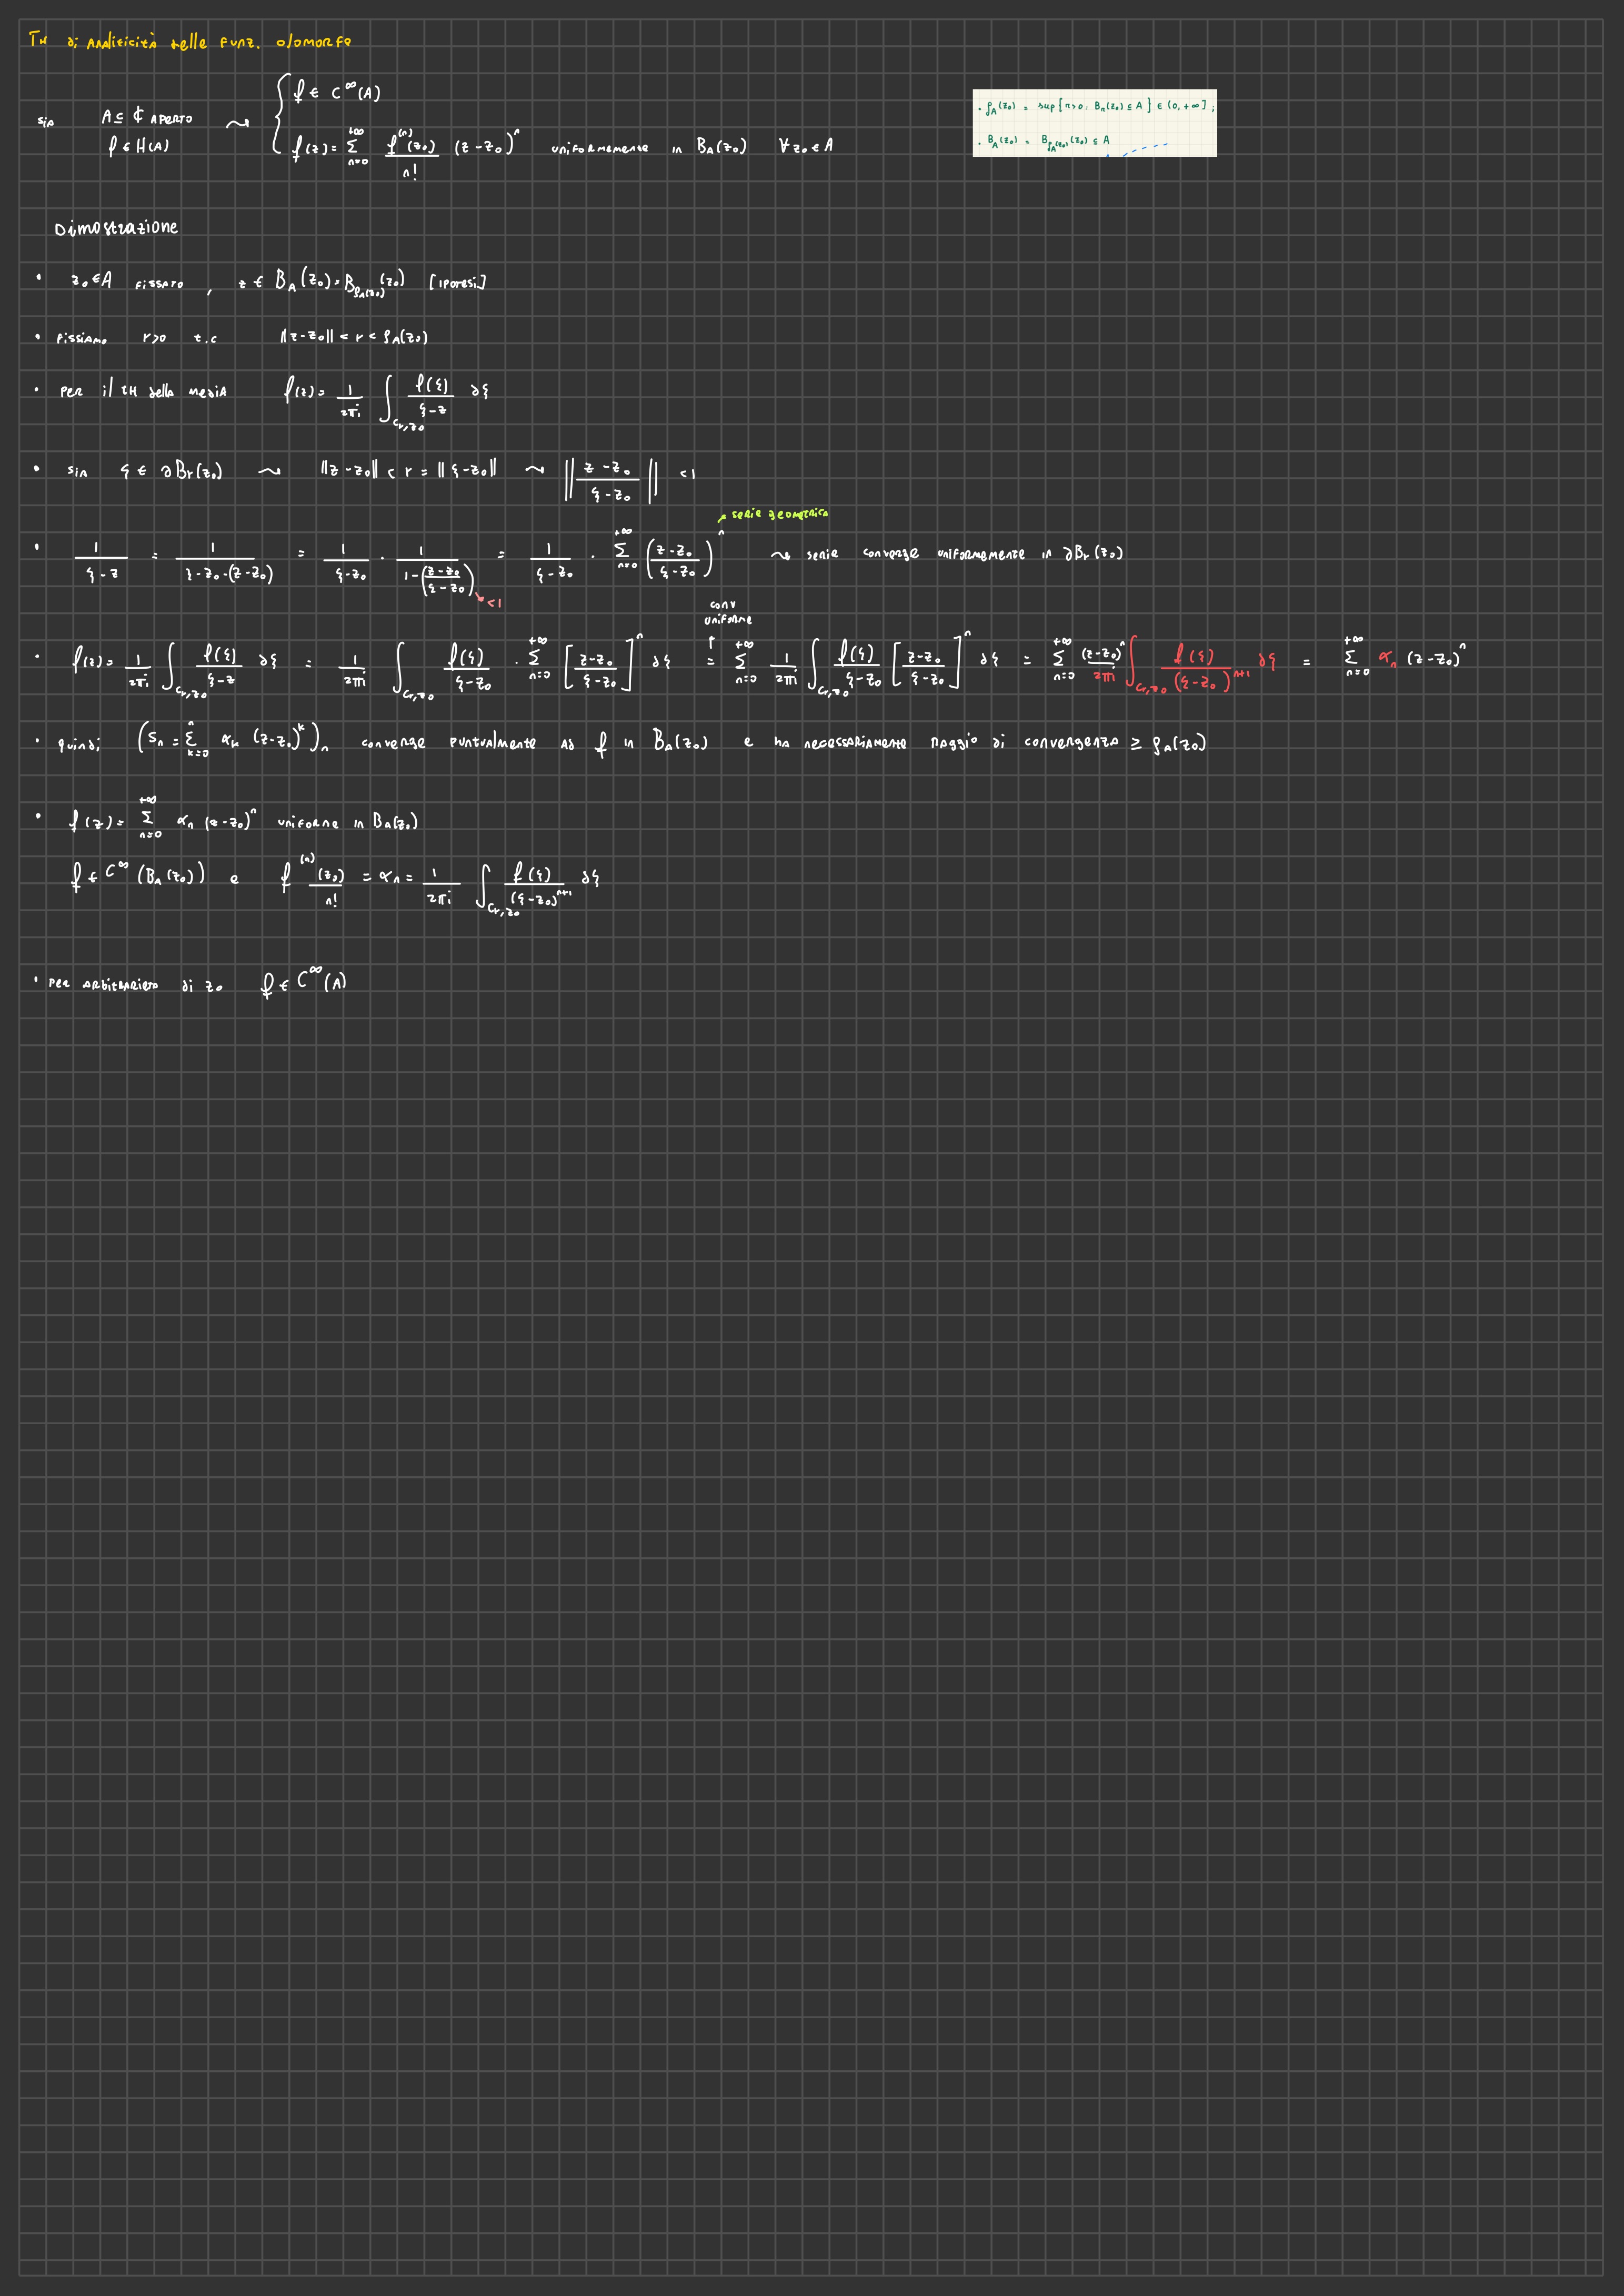 TH di Analiticità delle funz. olomorfe
sia A ⊆ ℂ APERTO ⇝ { f ∈ C^∞(A)
f ∈ H(A) f(z) = Σ_{n=0}^{+∞} f^{(n)}(z₀)/n! (z-z₀)^n uniformemente in B_A(z₀) ∀ z₀ ∈ A
· ρ_A(z₀) = sup{r>0 : B_r(z₀) ⊆ A} ∈ (0,+∞] ;
· B_A(z₀) = B_{ρ_A(z₀)}(z₀) ⊆ A
Dimostrazione
• z₀ ∈ A fissato , z ∈ B_A(z₀) = B_{ρ_A(z₀)}(z₀) [ipotesi]
• fissiamo r>0 t.c ||z-z₀|| < r < ρ_A(z₀)
• per il TH della media f(z) = 1/2πi ∫_{C_{r,z₀}} f(ξ)/(ξ-z) dξ
• sia ξ ∈ ∂B_r(z₀) ⇝ ||z-z₀|| < r = ||ξ-z₀|| ⇝ ||(z-z₀)/(ξ-z₀)|| < 1
serie geometrica
• 1/(ξ-z) = 1/(ξ-z₀-(z-z₀)) = 1/(ξ-z₀) · 1/(1-((z-z₀)/(ξ-z₀))) = 1/(ξ-z₀) · Σ_{n=0}^{+∞} ((z-z₀)/(ξ-z₀))^n ⇝ serie converge uniformemente in ∂B_r(z₀)
<1
conv
uniforme
• f(z) = 1/2πi ∫_{C_{r,z₀}} f(ξ)/(ξ-z) dξ = 1/2πi ∫_{C_{r,z₀}} f(ξ)/(ξ-z₀) · Σ_{n=0}^{+∞} [(z-z₀)/(ξ-z₀)]^n dξ = Σ_{n=0}^{+∞} 1/2πi ∫_{C_{r,z₀}} f(ξ)/(ξ-z₀) [(z-z₀)/(ξ-z₀)]^n dξ = Σ_{n=0}^{+∞} (z-z₀)^n/2πi ∫_{C_{r,z₀}} f(ξ)/(ξ-z₀)^{n+1} dξ = Σ_{n=0}^{+∞} α_n (z-z₀)^n
• quindi (S_n = Σ_{k=0}^{n} α_k (z-z₀)^k)_n converge puntualmente ad f in B_A(z₀) e ha necessariamente raggio di convergenza ≥ ρ_A(z₀)
• f(z) = Σ_{n=0}^{+∞} α_n (z-z₀)^n uniforme in B_A(z₀)
f ∈ C^∞(B_A(z₀)) e f^{(n)}(z₀)/n! = α_n = 1/2πi ∫_{C_{r,z₀}} f(ξ)/(ξ-z₀)^{n+1} dξ
• per arbitrarieta di z₀ f ∈ C^∞(A)